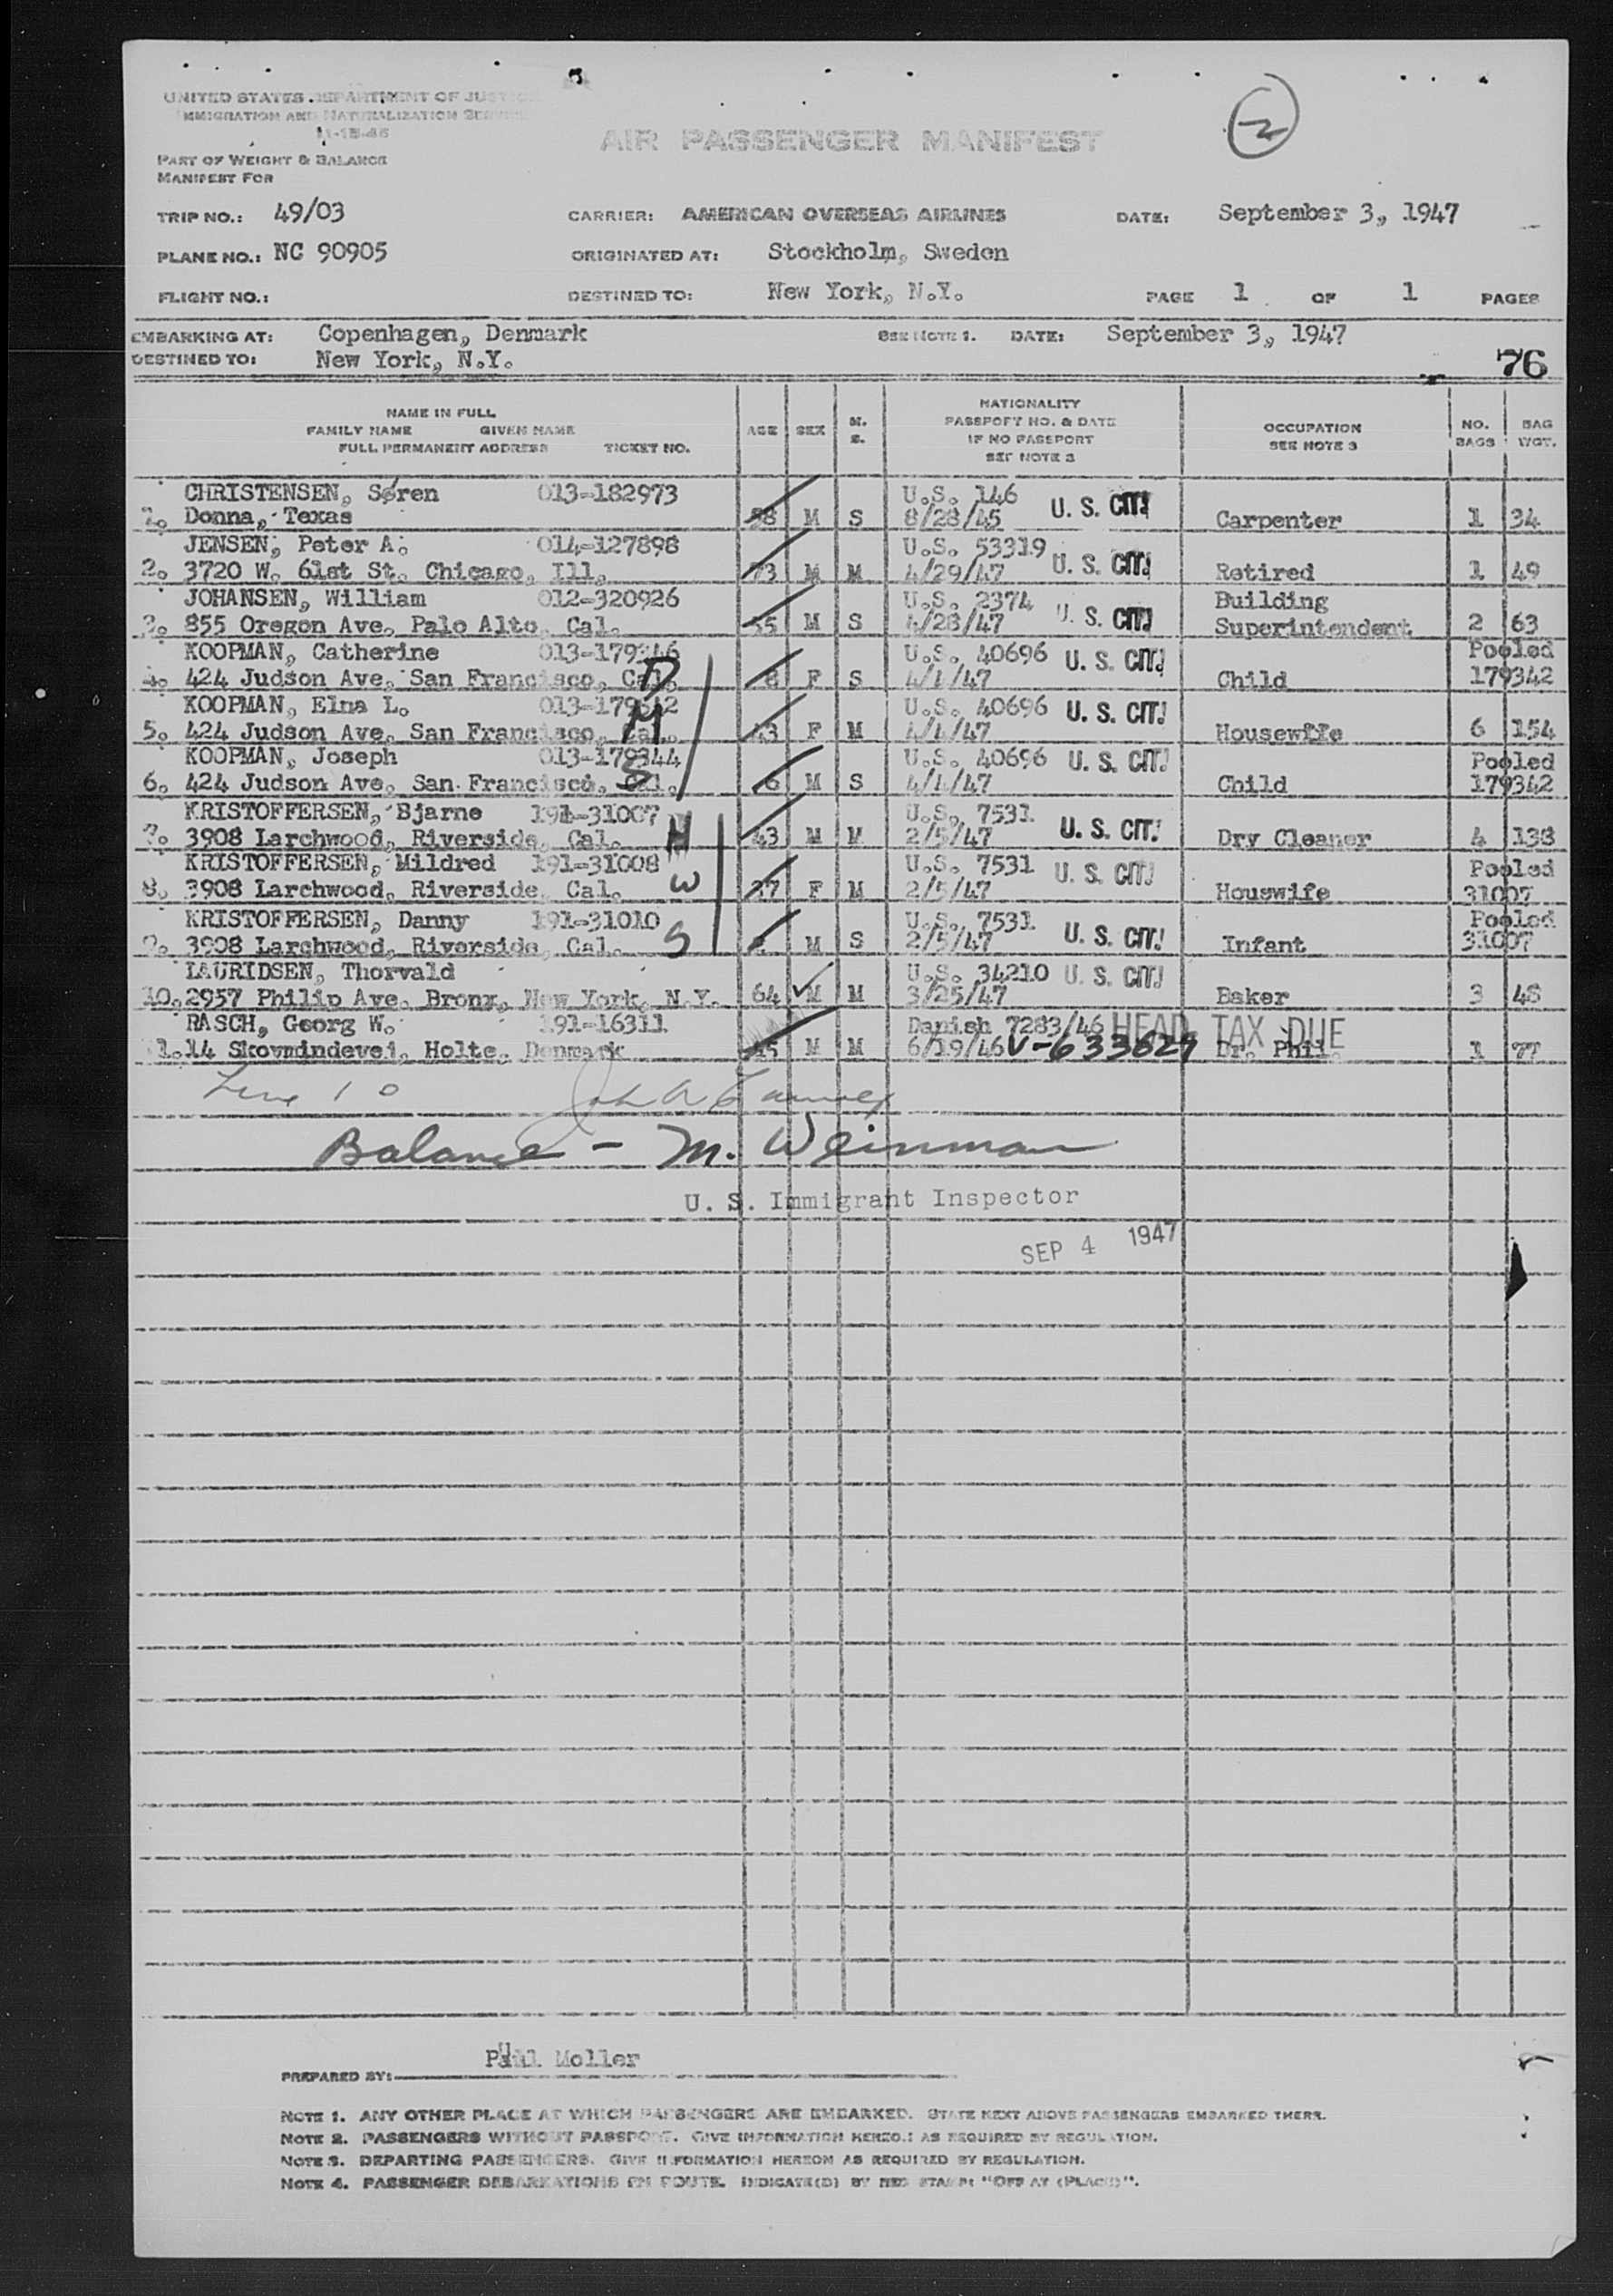 UNITED STATES DEPARTMENT OF JUSTICE
IMMIGRATION AND NATURALIZATION SERVICE
11-15-46
AIR PASSENGER MANIFEST
2
PART OF WEIGHT & BALANCE
MANIFEST FOR
TRIP NO.: 49/03 CARRIER: AMERICAN OVERSEAS AIRLINES DATE: September 3, 1947
PLANE NO.: NC 90905 ORIGINATED AT: Stockholm, Sweden
FLIGHT NO.: DESTINED TO: New York, N.Y. PAGE 1 OF 1 PAGES
EMBARKING AT: Copenhagen, Denmark SEE NOTE 1. DATE: September 3, 1947
DESTINED TO: New York, N.Y. 76
NAME IN FULL
FAMILY NAME GIVEN NAME
FULL PERMANENT ADDRESS TICKET NO.
AGE SEX M. S.
NATIONALITY
PASSPORT NO. & DATE
IF NO PASSPORT
SEE NOTE 2
OCCUPATION
SEE NOTE 3
NO. BAGS
BAG WGT.
CHRISTENSEN, Søren 013-182973 U.S. 146 U. S. CIT.
1. Donna, Texas M S 8/28/45 Carpenter 1 34
JENSEN, Peter A. 014-127898 U.S. 53319 U. S. CIT.
2. 3720 W. 61st St. Chicago, Ill. 73 M M 4/29/47 Retired 1 49
JOHANSEN, William 012-320926 U.S. 2374 U. S. CIT. Building
3. 855 Oregon Ave. Palo Alto, Cal. 55 M S 4/28/47 Superintendent 2 63
KOOPMAN, Catherine 013-179346 U.S. 40696 U. S. CIT. Pooled
4. 424 Judson Ave. San Francisco, Cal. D 8 F S 4/4/47 Child 179342
KOOPMAN, Elna L. 013-179342 U.S. 40696 U. S. CIT.
5. 424 Judson Ave. San Francisco, Cal. M 43 F M 4/4/47 Housewife 6 154
KOOPMAN, Joseph 013-179344 U.S. 40696 U. S. CIT. Pooled
6. 424 Judson Ave. San Francisco, Cal. S 6 M S 4/4/47 Child 179342
KRISTOFFERSEN, Bjarne 191-31007 U.S. 7531 U. S. CIT.
7. 3908 Larchwood, Riverside, Cal. H 43 M M 2/5/47 Dry Cleaner 4 138
KRISTOFFERSEN, Mildred 191-31008 U.S. 7531 U. S. CIT. Pooled
8. 3908 Larchwood, Riverside, Cal. W F M 2/5/47 Houswife 31007
KRISTOFFERSEN, Danny 191-31010 U.S. 7531 U. S. CIT. Pooled
9. 3908 Larchwood, Riverside, Cal. S M S 2/5/47 Infant 31007
LAURIDSEN, Thorvald U.S. 34210 U. S. CIT.
10. 2957 Philip Ave. Bronx, New York, N.Y. 64 M M 3/25/47 Baker 3 48
RASCH, Georg W. 191-16311 Danish 7283/46 HEAD TAX DUE
11. 14 Skovmindevej, Holte, Denmark 45 M M 6/19/46 V-633627 Dr. Phil. 1 77
Line 10 John A
Balance - M. Weinman
U. S. Immigrant Inspector
SEP 4 1947
Paul Moller
PREPARED BY:
NOTE 1. ANY OTHER PLACE AT WHICH PASSENGERS ARE EMBARKED. STATE NEXT ABOVE PASSENGERS EMBARKED THERE.
NOTE 2. PASSENGERS WITHOUT PASSPORT. GIVE INFORMATION HEREON AS REQUIRED BY REGULATION.
NOTE 3. DEPARTING PASSENGERS. GIVE INFORMATION HEREON AS REQUIRED BY REGULATION.
NOTE 4. PASSENGER DEBARKATIONS EN ROUTE. INDICATE(D) BY RED STAMP: "OFF AT (PLACE)".